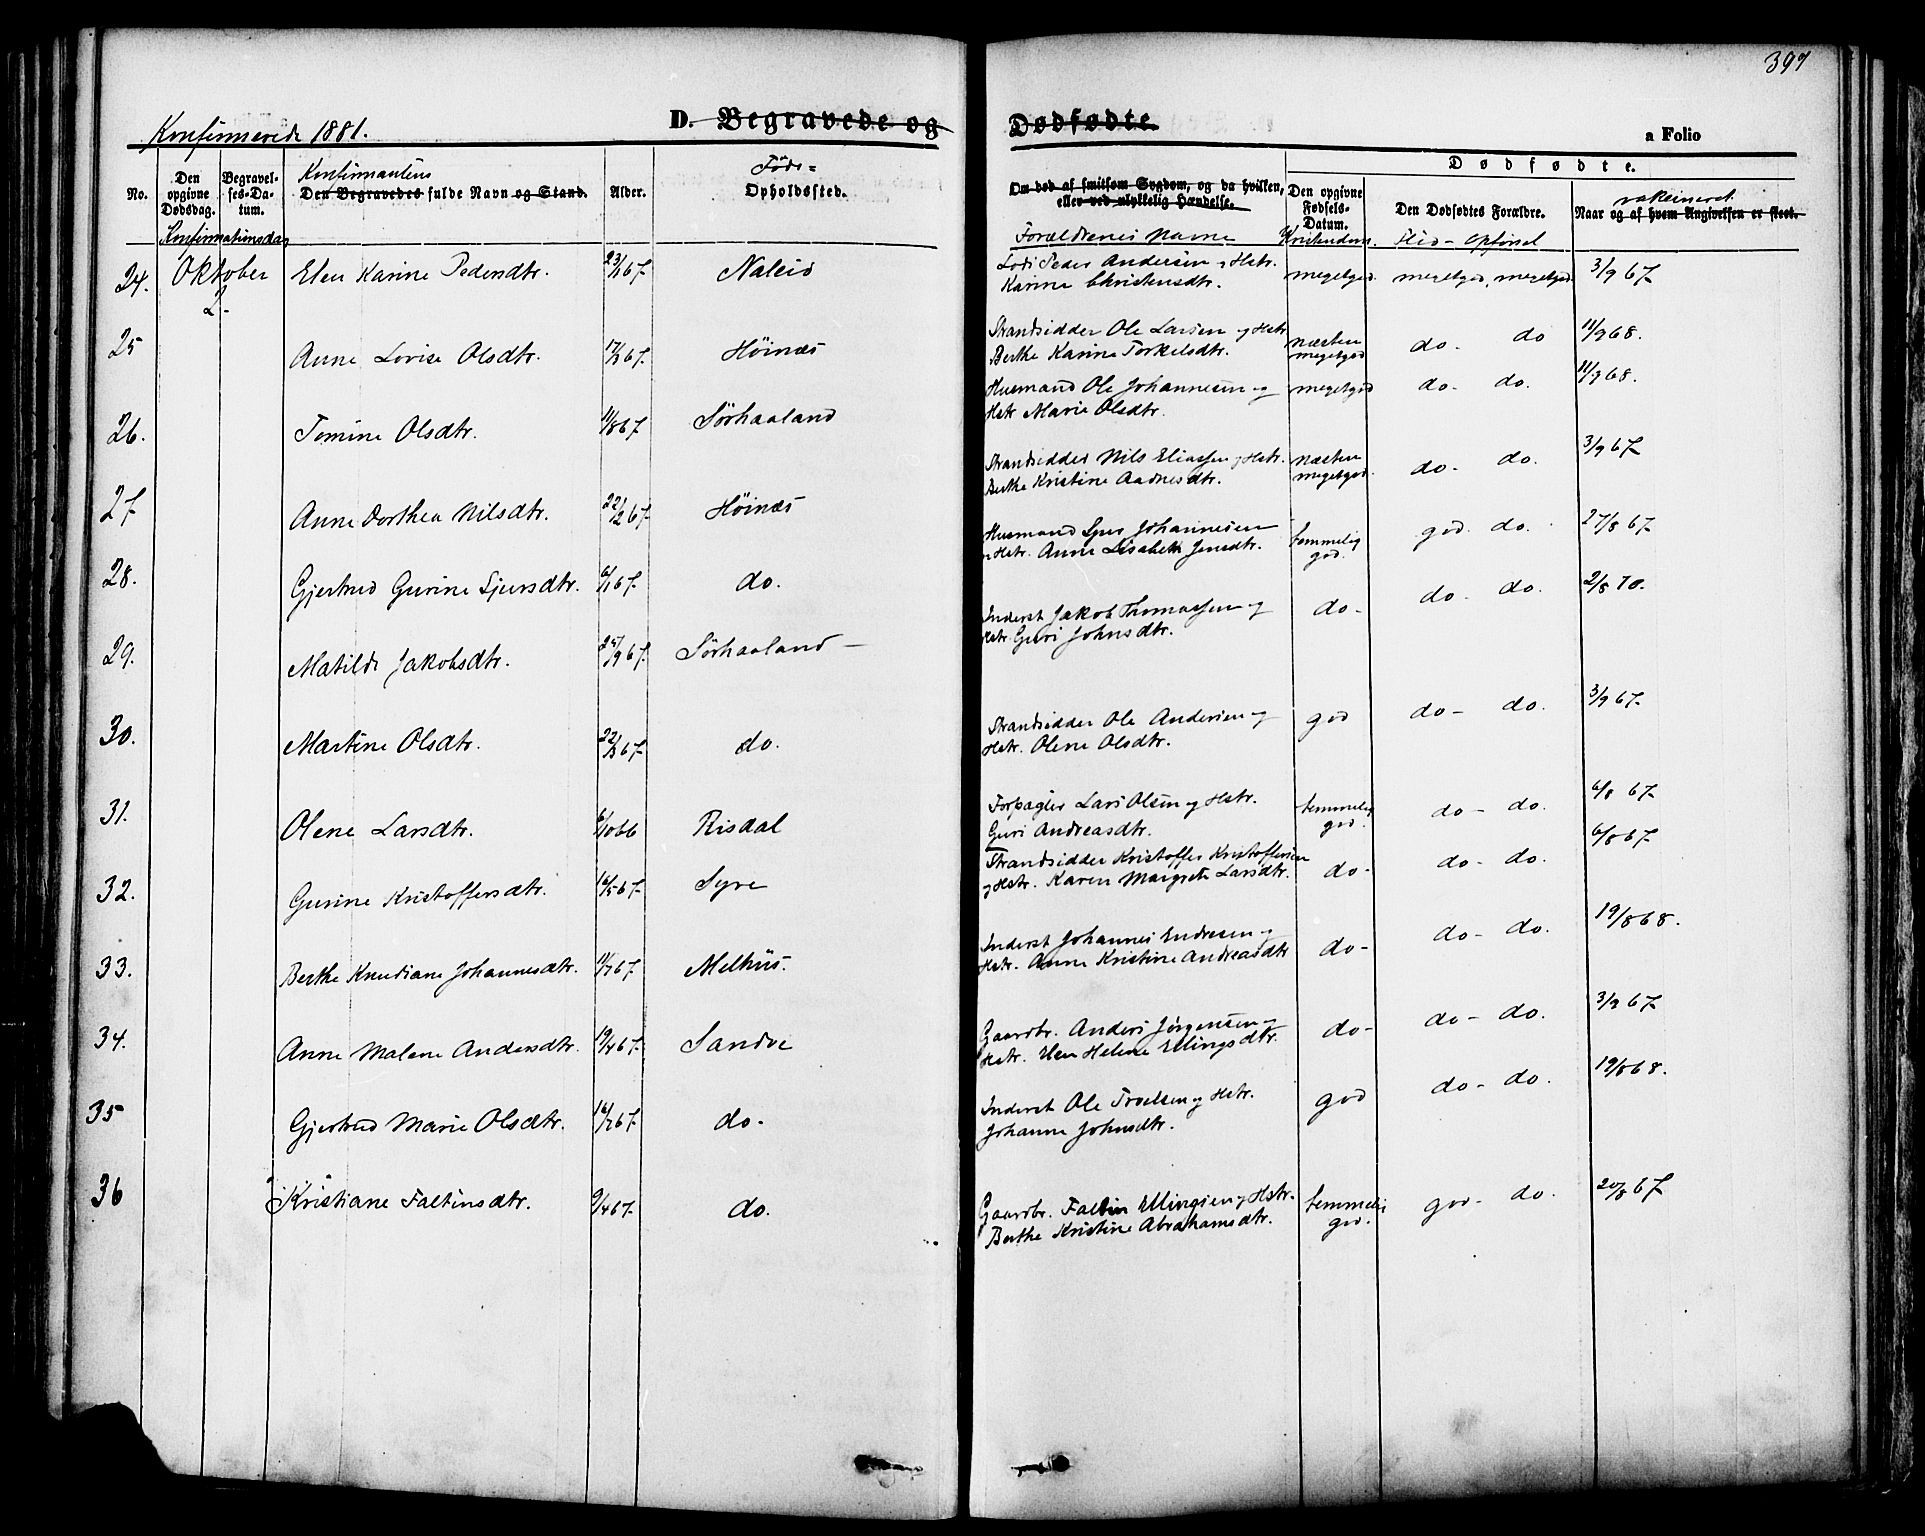 397
Konfirmerede 1881.
D. Begravede og Dødfødte.
a Folio
No.
Den opgivne Dødsdag.
Begravelses-Datum.
Konfirmationsdag
Konfirmantens
Den Begravedes fulde Navn og Stand.
Alder.
Føde=
Opholdssted.
Om død af smitsom Sygdom, og da hvilken, eller ved ulykkelig Hændelse.
Forældrenes Navne
Dødfødte.
Den opgivne Fødsels-Datum.
Kristendom.
Den Dødfødtes Forældre.
Flid - Opførsel
vakcineret
Naar og af hvem Angivelsen er skeet.
24. Oktober 2. Elen Karine Pedersdtr. 23/11 67. Naleid
Lods Peder Andersen og Hstr.
Karine Christensdtr. megetgod megetgod, megetgod 3/9 67.
25 Anne Lovise Olsdtr. Høinæs
Strandsidder Ole Larsen og Hstr.
Berthe Karine Torkelsdtr. næsten megetgod do. do 11/9 68.
26. Tomine Olsdtr. 11/8 67. Sørhaaland
Husmand Ole Johannesen og
Hstr Marie Olsdtr. megetgod do- do. 11/9 68.
27 Anne Dorthea Nilsdtr. 22/12 67. Høinæs
Strandsidder Nils Eliassen og Hstr.
Berthe Kristine Aadnesdtr. næsten megetgod. do- do. 3/9 67.
28. Gjertrud Gurine Sjursdtr. 6/1 67. do.
Husmand Sjur Johannesen
og Hstr. Anne Lisabeth Jensdtr. temmelig god. god. do. 27/8 67.
29. Matilde Jakobsdtr. 25/9 67. Sørhaaland -
Inderst Jakob Thomassen og
Hstr Guri Johnsdtr. do- do- do. 2/8 70.
30. Martine Olsdtr. 22/3 67. do.
Strandsidder Ole Andersen og
Hstr. Olene Olsdtr. god do- do. 3/9 67.
31. Olene Larsdtr. 6/10 66 Risdal
Forpagter Lars Olsen og Hstr.
Guri Andreasdtr. temmelig god. do- do. 6/8 67.
32. Gurine Kristoffersdtr. 16/5 67. Syre
Strandsidder Kristoffer Kristoffersen
og Hstr. Karen Margrete Larsdtr. do- do- do. 6/8 67.
33. Berthe Knudiane Johannesdtr. 11/7 67. Melhus.
Inderst Johannes Endresen og
Hstr. Anne Kristine Andreasdtr do- do- do. 19/8 68.
34. Anne Malene Andersdtr. 19/4 67. Sandve
Gaardbr. Anders Jørgensen og
Hstr. Elen Helene Ellingsdtr. do- do- do. 3/9 67.
35 Gjertrud Marie Olsdtr. 16/7 67. do.
Inderst Ole Troelsen og Hstr.
Johanne Johnsdtr. god do- do. 19/8 68.
36 Kristiane Faltinsdtr. 9/4 67. do.
Gaardbr. Faltin Ellingsen og Hstr.
Berthe Kristine Abrahamsdtr. temmelig god. god- do. 20/8 67.